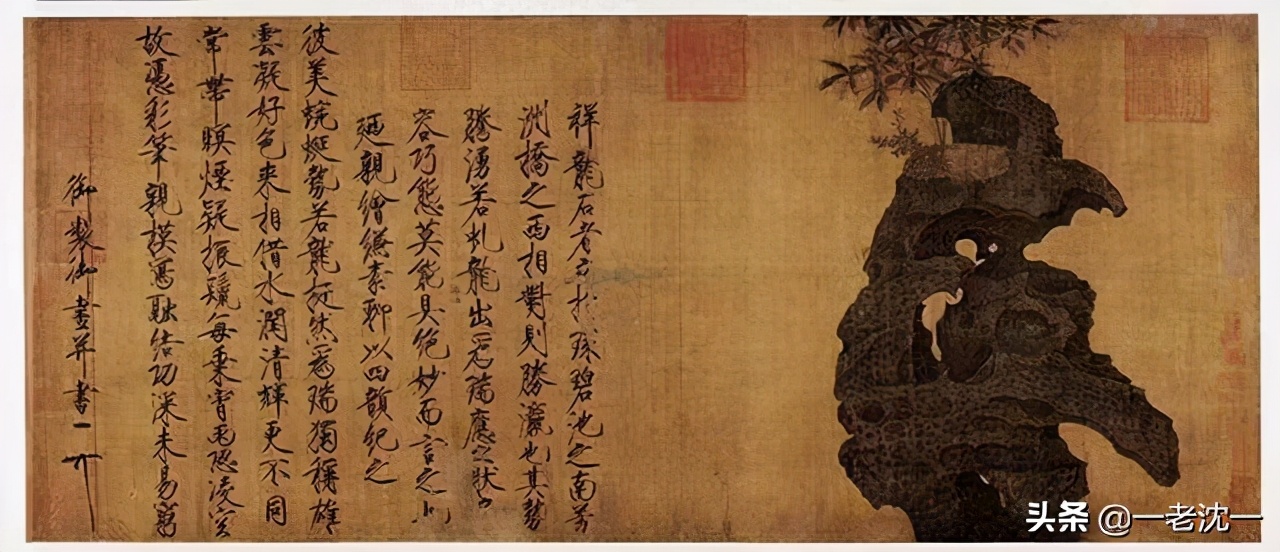 祥龍石者立於環碧池之南芳
洲橋之西相對則勝瀛也其勢
騰湧若虬龍出為瑞應之狀奇
容巧態莫能具絕妙而言之也
廼親繪縑素聊以四韻紀之
彼美蜿蜒勢若龍挺然為瑞獨稱雄
雲凝好色来相借水潤清輝更不同
常帶暝煙疑振鬣每乘宵雨恐凌空
故憑彩筆親模寫融結功深未易窮
御製御畫并書
头条 @一老沈一